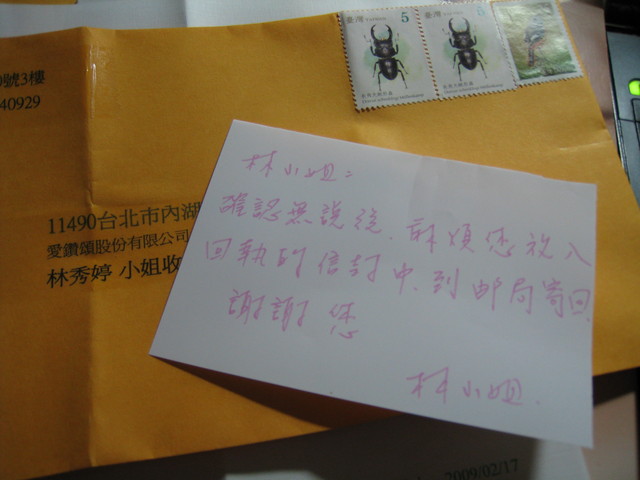 0號3樓
40929
臺灣 5
臺灣
11490台北市內湖
愛鑽頌股份有限公司
林秀婷 小姐收
林小姐:
確認無說後、麻煩您放入
回執的信封中、到郵局寄回.
謝謝您
林小姐.
2009/02/17